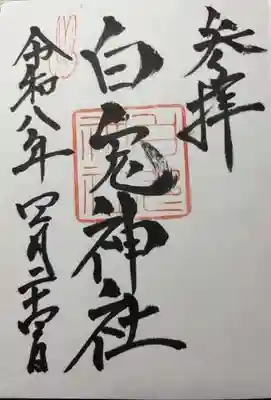 参拝
白兎神社
令和八年 四月二十四日